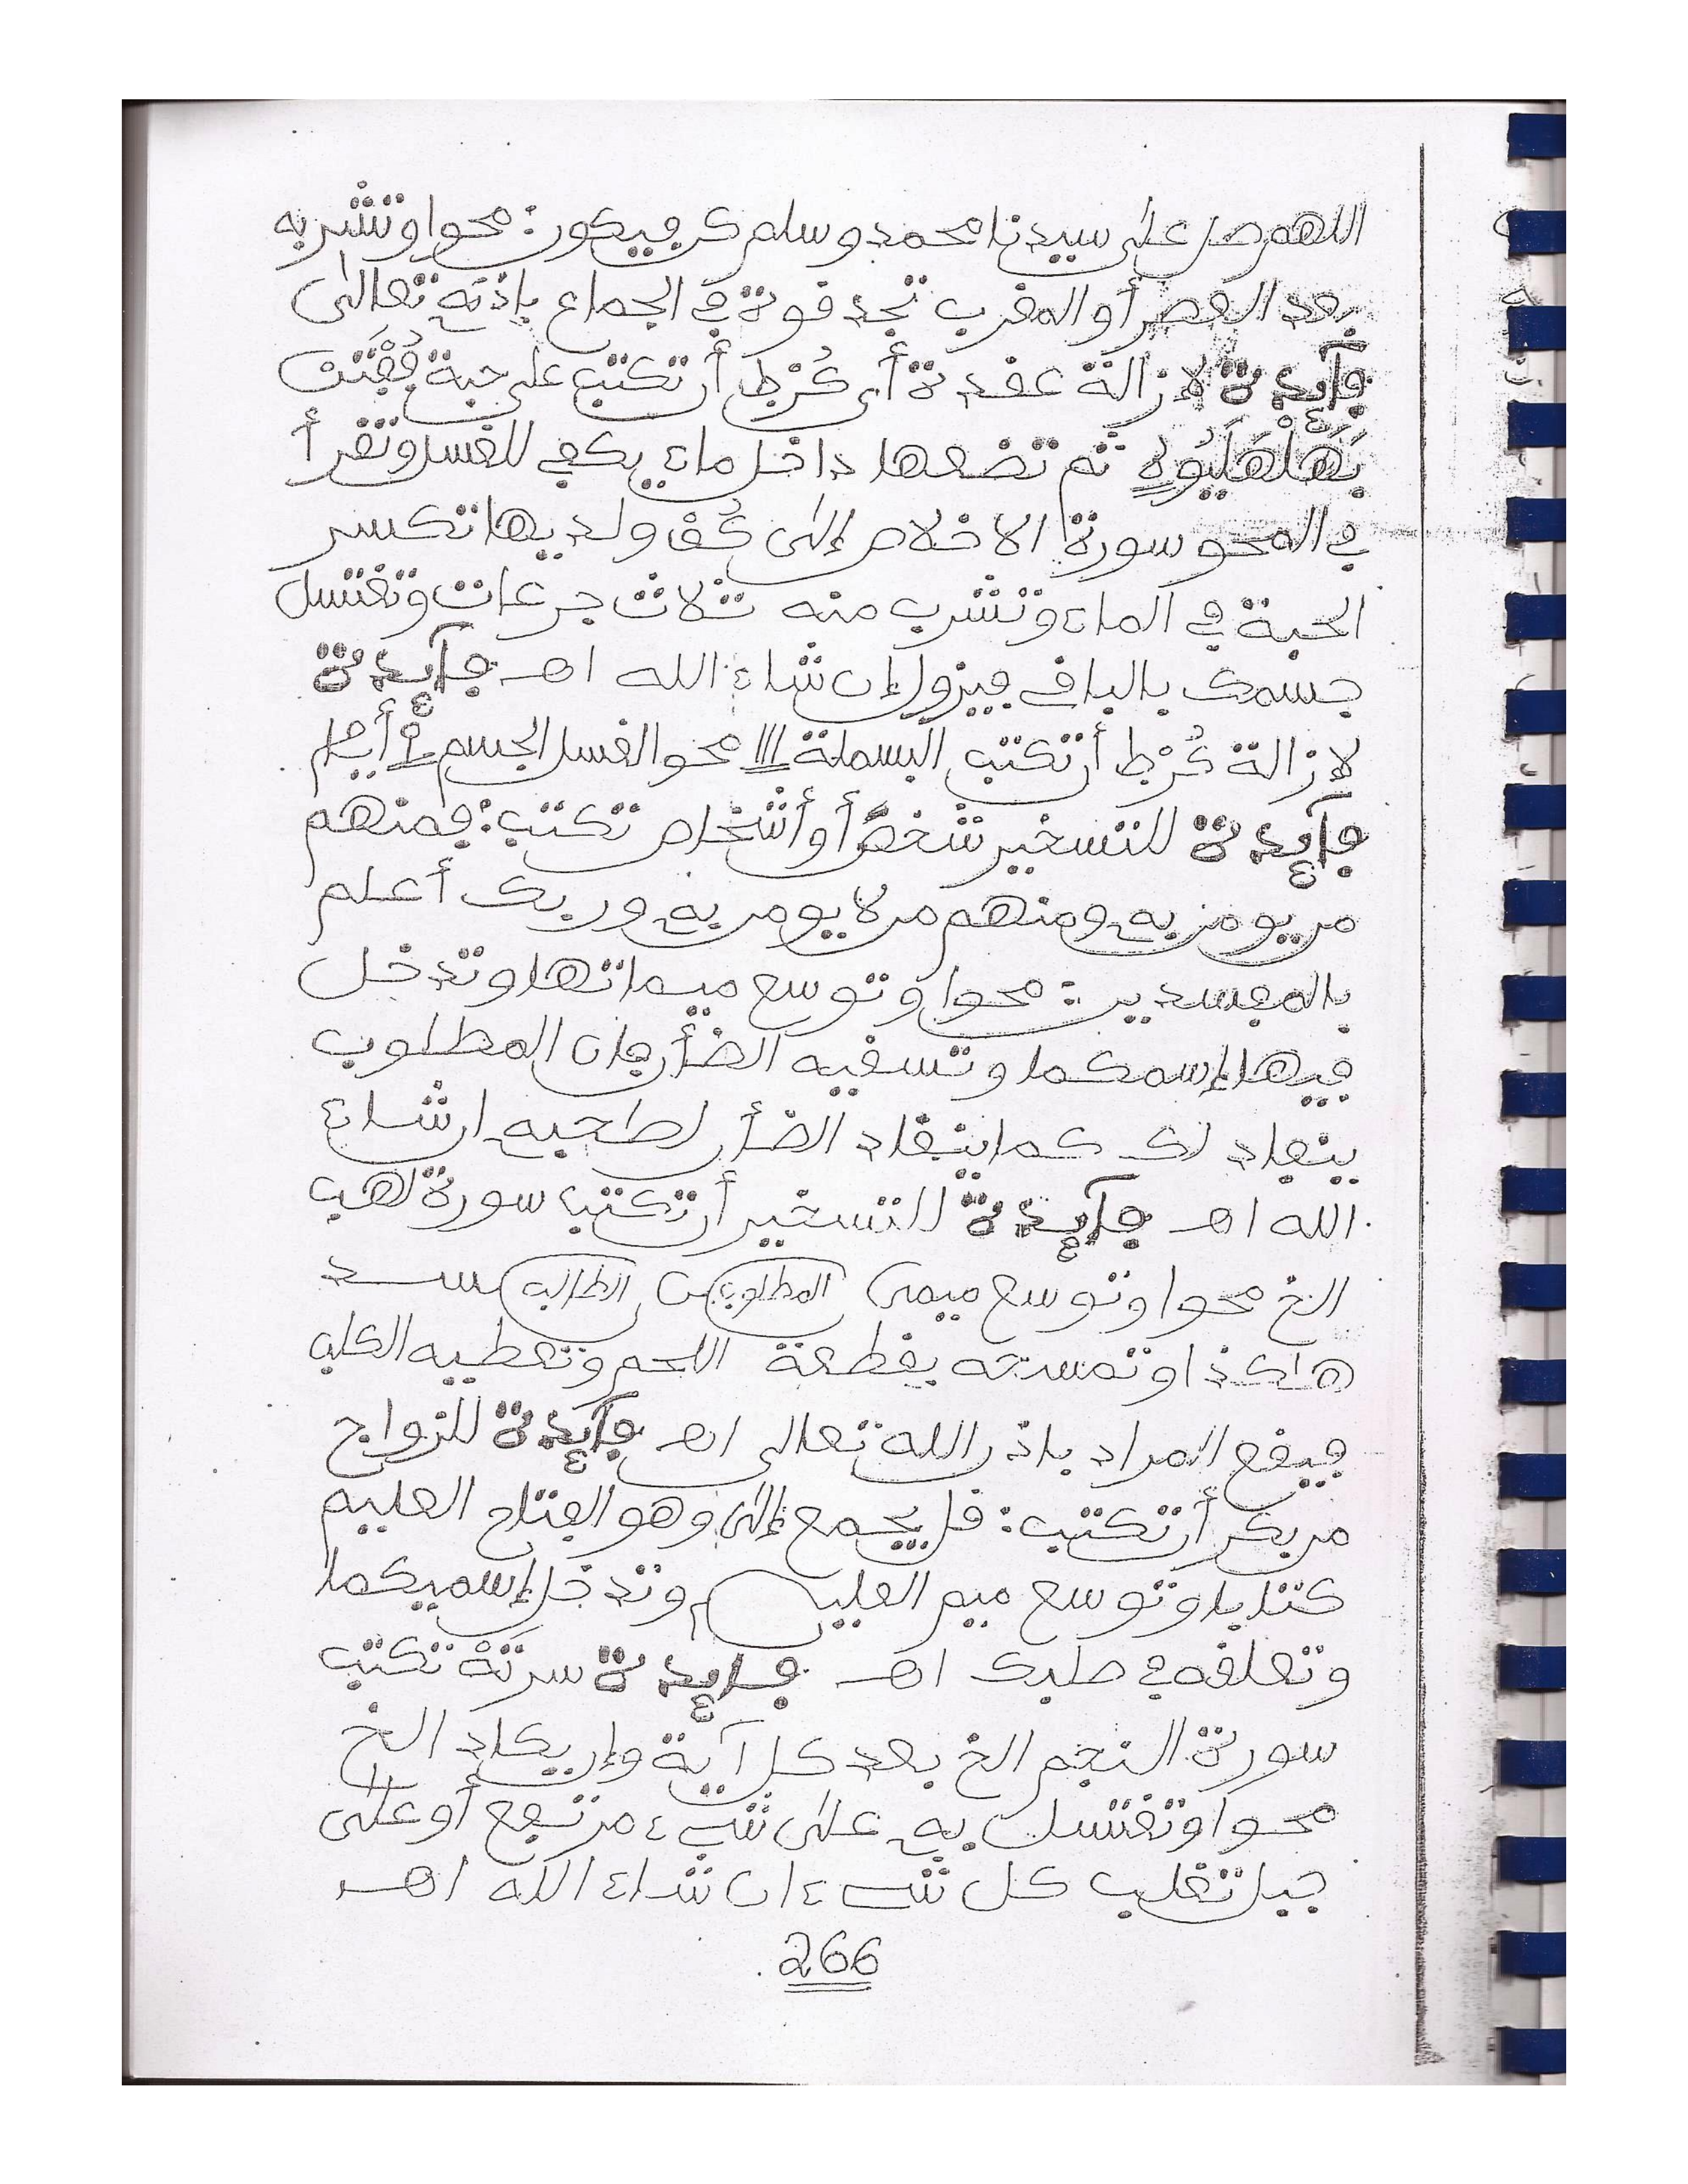 اللهم صل على سيدنا محمد وسلم كن فيكون: محوا وتشربه
بعد العصر أو المغرب تجد قوة في الجماع بإذنه تعالى
فآيدة لإزالة عقدة أي أن تكتب على حبة
ثم تضعها داخل ماء يكفي للغسل وتقرأ
في المحو سورة الاخلاص إلى ولديها تكسر
الحبة في الماء وتشرب منه ثلاث جرعات وتغتسل
جسمك بالباقي فيزول إن شاء الله اهـ فآيدة
لإزالة أن تكتب البسملة محو الغسل الجسم أيام
فآيدة للتسخير شخص أو أشخاص تكتب: فمنهم
من يومن به ومنهم من لا يومن به وربك أعلم
بالمفسدين: محوا وتوسع ميماتها وتدخل
فيها إسمكما وتسقيه الضأن فإن المطلوب
ينقاد لك كما ينقاد الضأن لصاحبه ان شاء
الله اهـ فآيدة للتسخير أن تكتب سورة لهب
الخ محوا وتوسع ميمى المطلوب الطالب سد
هاكذا وتمسحه بقطعة اللحم وتعطيه الكلب
فيقع المراد باذن الله تعالى اهـ فآيدة للزواج
من بكر أن تكتب: قل يجمع إلى وهو الفتاح العليم
كتابا وتوسع ميم العليم وتدخل إسميكما
وتعلقه في صلبك اهـ فايدة سرتة تكتب
سورة النجم الخ بعد كل آية وإن يكاد الخ
محوا وتغتسل به على شيء مرتفع أو على
جبل تغلب كل شيء ان شاء الله اهـ
266